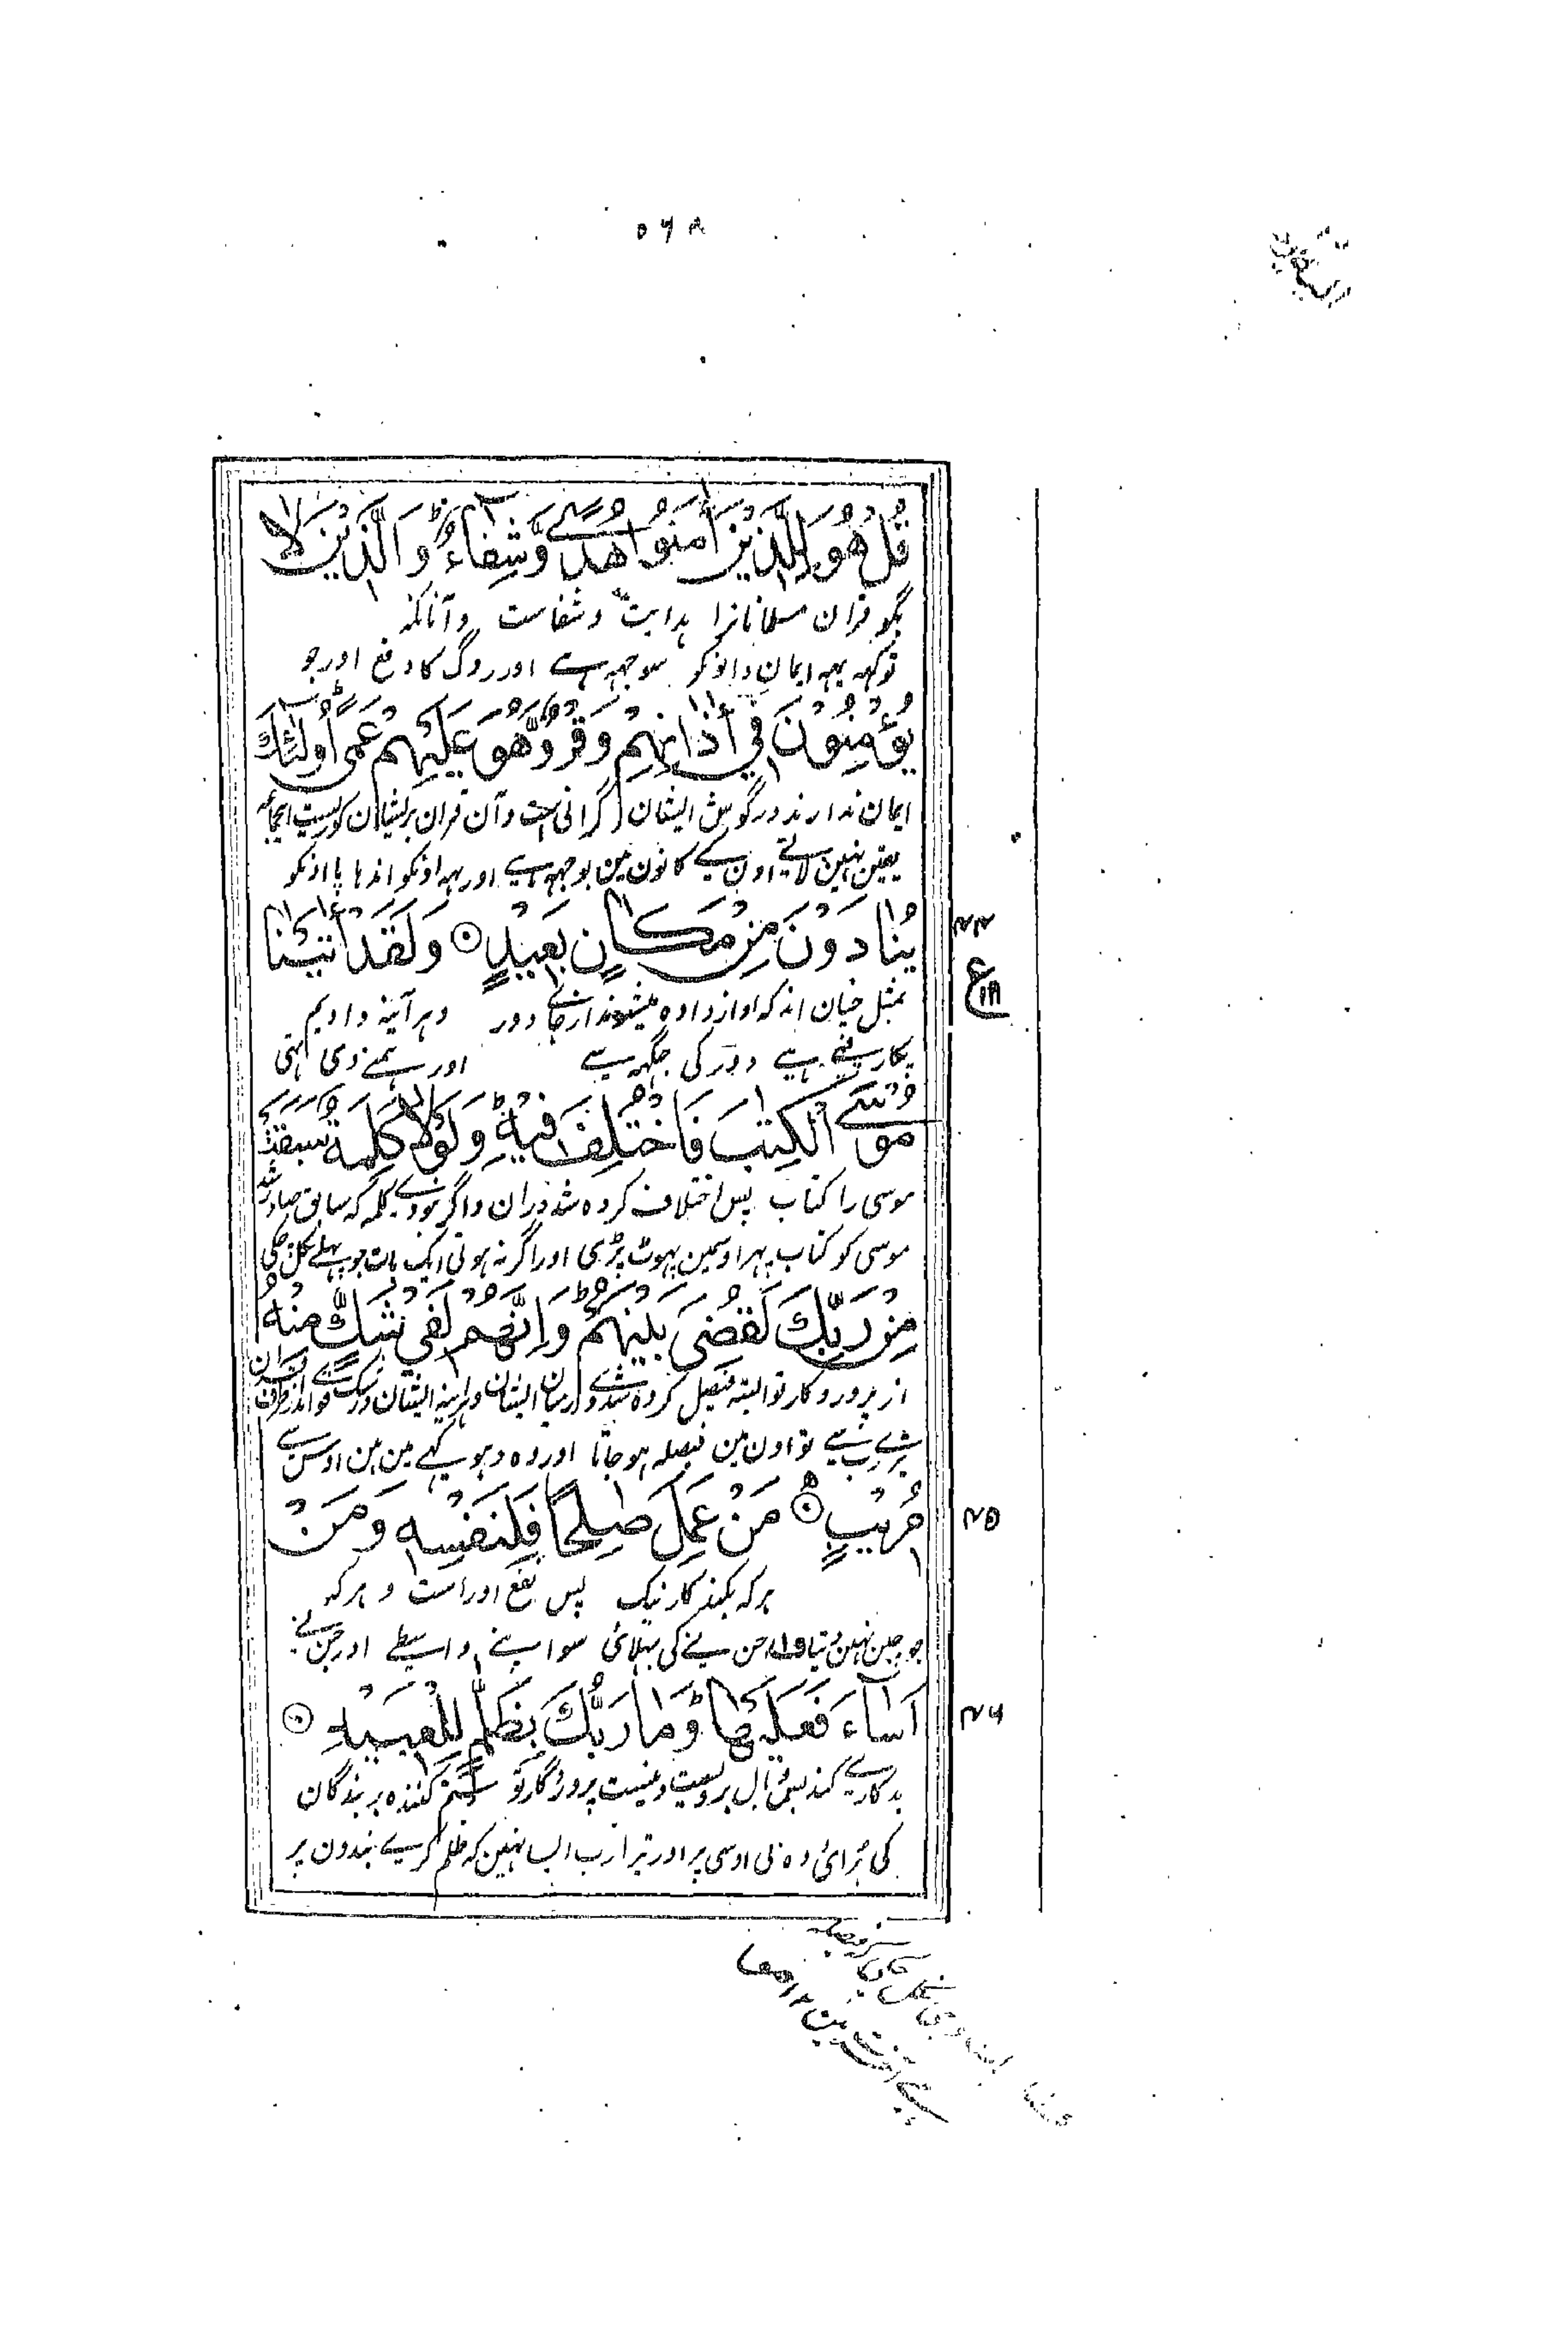 ۵۶۸
قُلْ هُوَ لِلَّذِيْنَ اٰمَنُوْا هُدًے وَّشِفَآءٌ ؕ وَالَّذِيْنَ لَا
بگو قران مسلمانانرا ہدایت و شفاست و آنانکہ
تو کہہ یہہ ایمان والونکو سوجہہ ہے اور روگ کا دفع اور جو
يُؤْمِنُوْنَ فِيْ اٰذَانِهِمْ وَقْرٌ وَّهُوَ عَلَيْهِمْ عَمًى ؕ اُولٰٓئِكَ
ایمان ندارند در گوش ایشان گرانی است و آن قران بر ایشان کوریست
یقین نہین لاتے اون کے کانون مین بوجہہ ہے اور یہہ اونکو اندہاپا اونکو
يُنَادَوْنَ مِنْ مَّكَانٍ بَعِيْدٍ ۞ وَلَقَدْ اٰتَيْنَا
۴۴
ع
بمثل چنان اند کہ اواز داده میشوند از جائے دور و ہر آئینہ دادیم
پکارتے ہے دور کی جگہہ سے اور ہمنے دی تہی
مُوْسَے الْكِتٰبَ فَاخْتُلِفَ فِيْهِ ؕ وَلَوْلَا كَلِمَةٌ سَبَقَتْ
موسی را کتاب پس اختلاف کرده شد دران و اگر نبودے کلمہ کہ سابق صادر شد
موسی کو کتاب پہر اوسمین پہوٹ پڑی اور اگر نہ ہوتی ایک بات جو پہلے نکل چکی
مِنْ رَّبِّكَ لَقُضِىَ بَيْنَهُمْ ؕ وَاِنَّهُمْ لَفِيْ شَكٍّ مِّنْهُ
از پروردگار تو البتہ فیصل کرده شدے درمیان ایشان و ہر آینہ ایشان در شکے
تیرے رب سے تو اون مین فیصلہ ہو جاتا اور وہ دہوکہے مین ہین اوس سے
مُرِيْبٍ ۞ مَنْ عَمِلَ صٰلِحًا فَلِنَفْسِهٖ وَمَنْ
۴۵
ہر کہ بکند کار نیک پس نفع اوراست و ہر کہ
جو چین نہین دیتا ف جن نے کی بہلائی سو اپنے واسطے اور جن نے
اَسَآءَ فَعَلَيْهَا ؕ وَمَا رَبُّكَ بِظَلَّامٍ لِّلْعَبِيْدِ ۞
۴۶
بدکارے کند پس وبال بر ویست و نیست پروردگار تو ستم کننده بر بندگان
کی برائی وہ بی اوسی پر اور تیرا رب ایسا نہین کہ ظلم کرے بندون پر